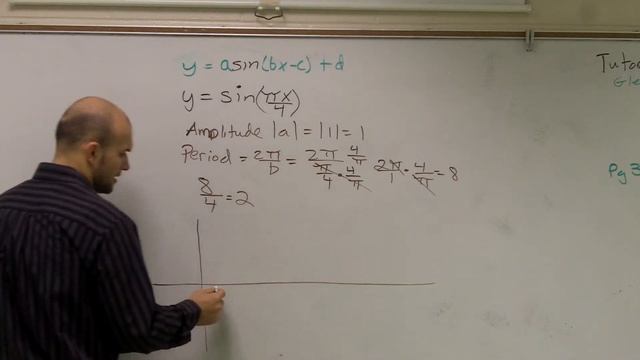 y = asin(bx-c) + d
y = sin(πx/4)
Amplitude |a| = |1| = 1
Period = 2π/b = 2π/(π/4) · (4/π)/(4/π) 2π/1 · 4/π = 8
8/4 = 2
Tuto
Gle
Pg 3